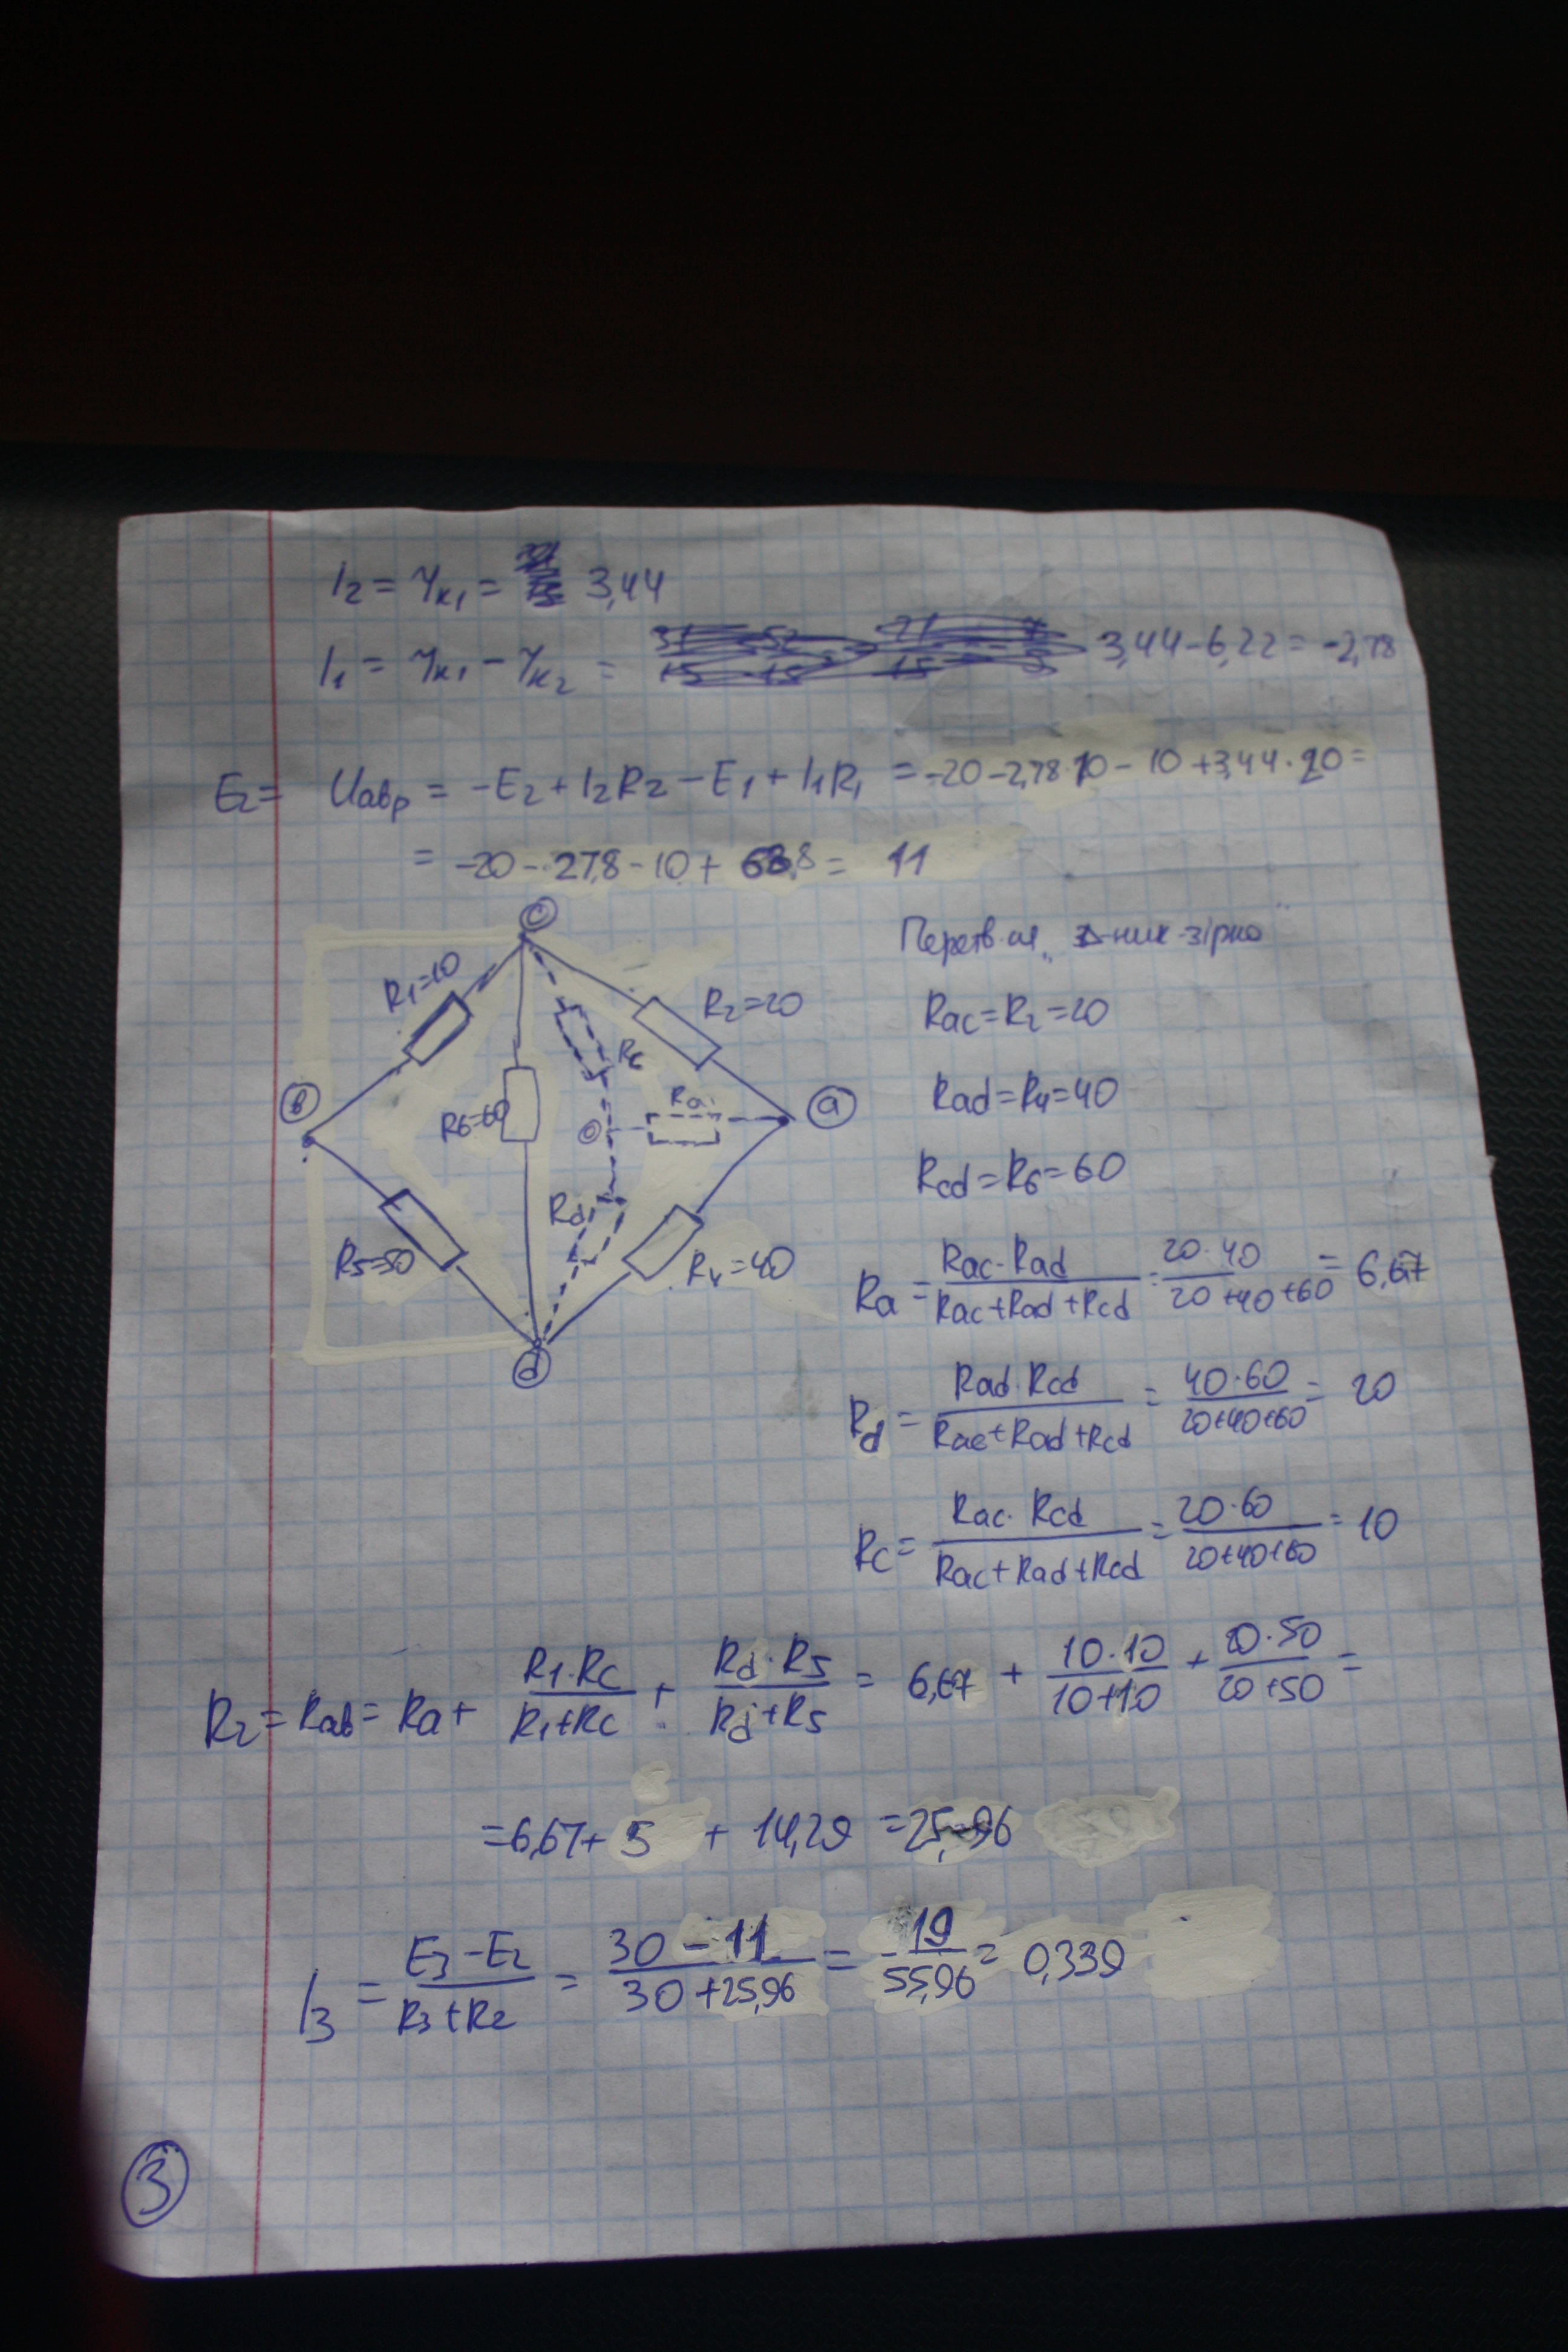 I2 = Iк1 = 3,44
I1 = Iк1 - Iк2 = 3,44-6,22 = -2,78
Eг= Uавр = -E2 + I2R2 - E1 + I1R1 = -20-2,78·10 - 10 +3,44·20 =
= -20 - 27,8 - 10 + 68,8 = 11
c
R1=10
R2=20
Rc
Ra
b
a
R6=60
o
Rd
R5=50
R4=40
d
Перетв-ня „ Δ-ник-зірка"
Rac=R2=20
Rad=R4=40
Rcd=R6=60
Ra = Rac·Rad / Rac+Rad+Rcd = 20·40 / 20+40+60 = 6,67
Rd = Rad·Rcd / Rac+Rad+Rcd = 40·60 / 20+40+60 = 20
Rc = Rac·Rcd / Rac+Rad+Rcd = 20·60 / 20+40+60 = 10
Rг = Rав = Ra + R1·Rc / R1+Rc + Rd·R5 / Rd+R5 = 6,67 + 10·10 / 10+10 + 20·50 / 20+50 =
=6,67+ 5 + 14,29 =25,96
I3 = E3-Eг / R3+Rг = 30-11 / 30+25,96 = 19 / 55,96 = 0,339
3